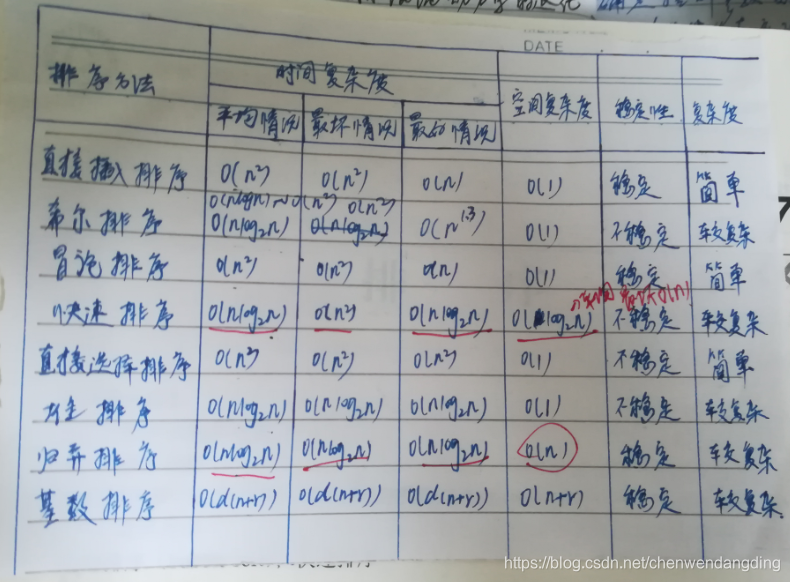 DATE
排序方法 时间复杂度 空间复杂度 稳定性 复杂度
平均情况 最坏情况 最好情况
直接插入排序 O(n²) O(n²) O(n) O(1) 稳定 简单
O(nlogn)~O(n²) O(n²)
希尔排序 O(nlog₂n) O(nlog₂n) O(n^1.3) O(1) 不稳定 较复杂
冒泡排序 O(n²) O(n²) O(n) O(1) 稳定 简单
O(n)
快速排序 O(nlog₂n) O(n²) O(nlog₂n) O(log₂n) 不稳定 较复杂
直接选择排序 O(n²) O(n²) O(n²) O(1) 不稳定 简单
堆排序 O(nlog₂n) O(nlog₂n) O(nlog₂n) O(1) 不稳定 较复杂
归并排序 O(nlog₂n) O(nlog₂n) O(nlog₂n) O(n) 稳定 较复杂
基数排序 O(d(n+r)) O(d(n+r)) O(d(n+r)) O(n+r) 稳定 较复杂
https://blog.csdn.net/chenwendangding